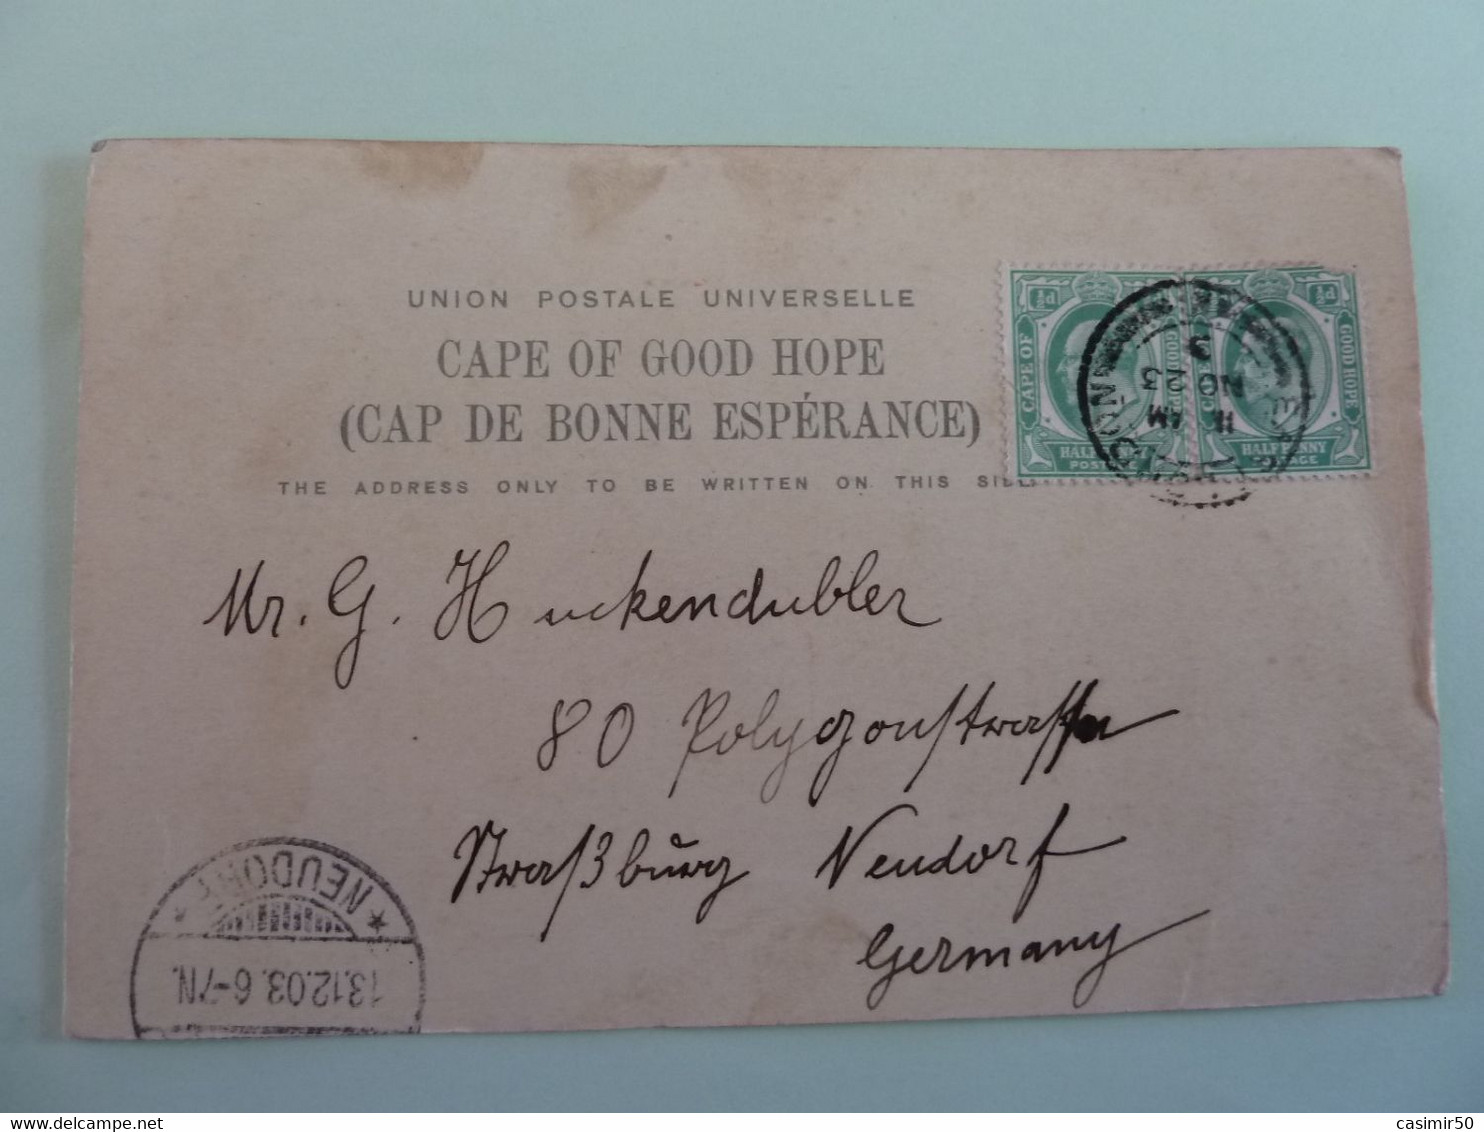 UNION POSTALE UNIVERSELLE
CAPE OF GOOD HOPE
(CAP DE BONNE ESPÉRANCE)
THE ADDRESS ONLY TO BE WRITTEN ON THIS SIDE.
½d
CAPE OF
GOOD HOPE
HALF PENNY
POSTAGE
½d
GOOD HOPE
HALF PENNY
POSTAGE
11 AM
NO 23
3
Mr. G. Huckendubler
80 Polygonstrasse
Straßburg Neudorf
Germany
* NEUDORF *
13.12.03. 6-7N.
casimir50